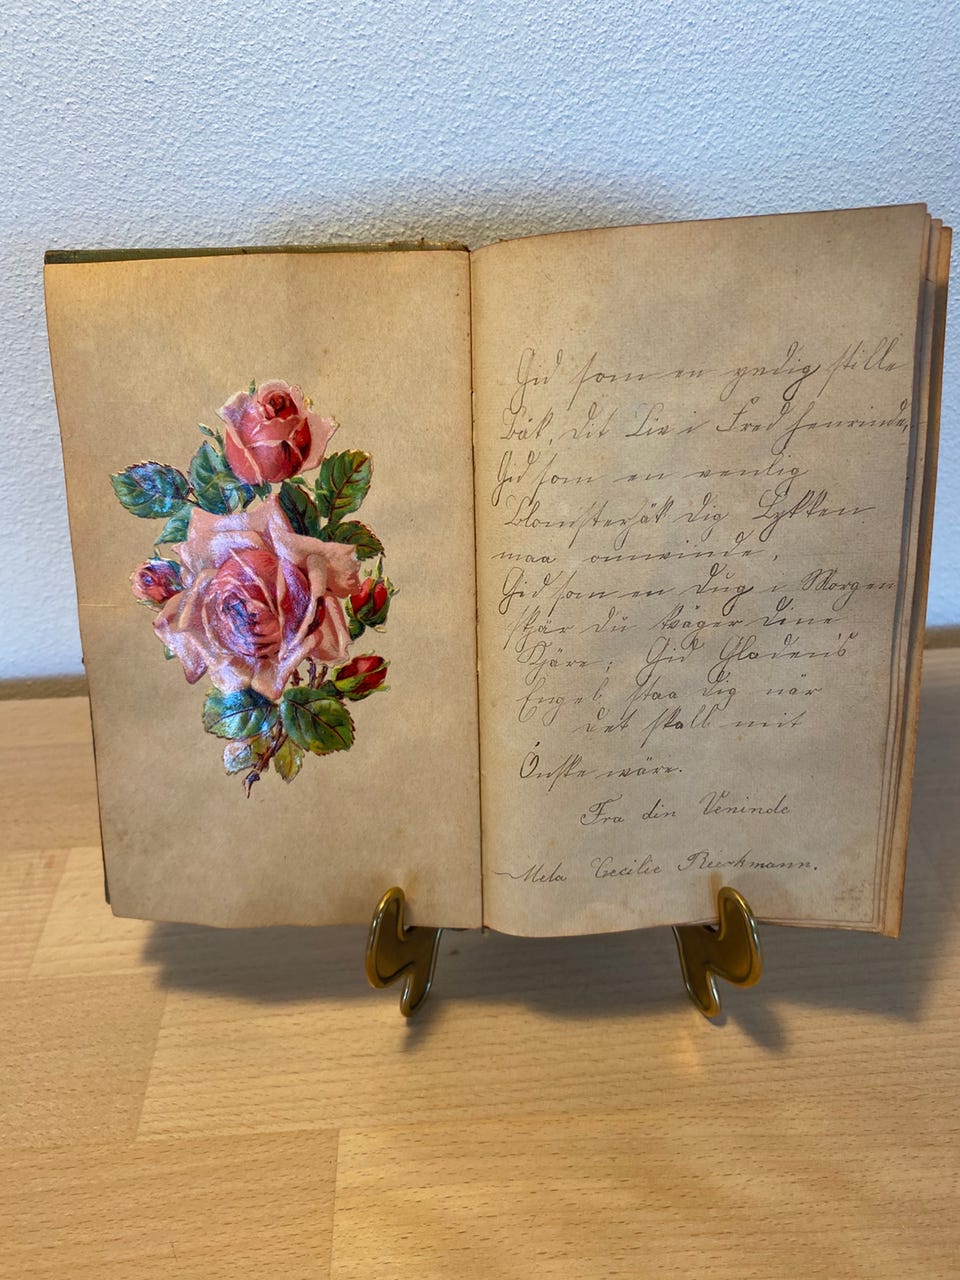 Gid som en yndig stille
Bäk, dit Liv i Fred henrinde,
Gid som en venlig
Blomsterhäk dig Lykken
maa omvinde,
Gid som en Dug i Morgen
skjär du kväger dine
Kjäre; Gid Gladen's
Engel staa dig när
det skall mit
Önske wäre.
Fra din Veninde
Meta Cecilie